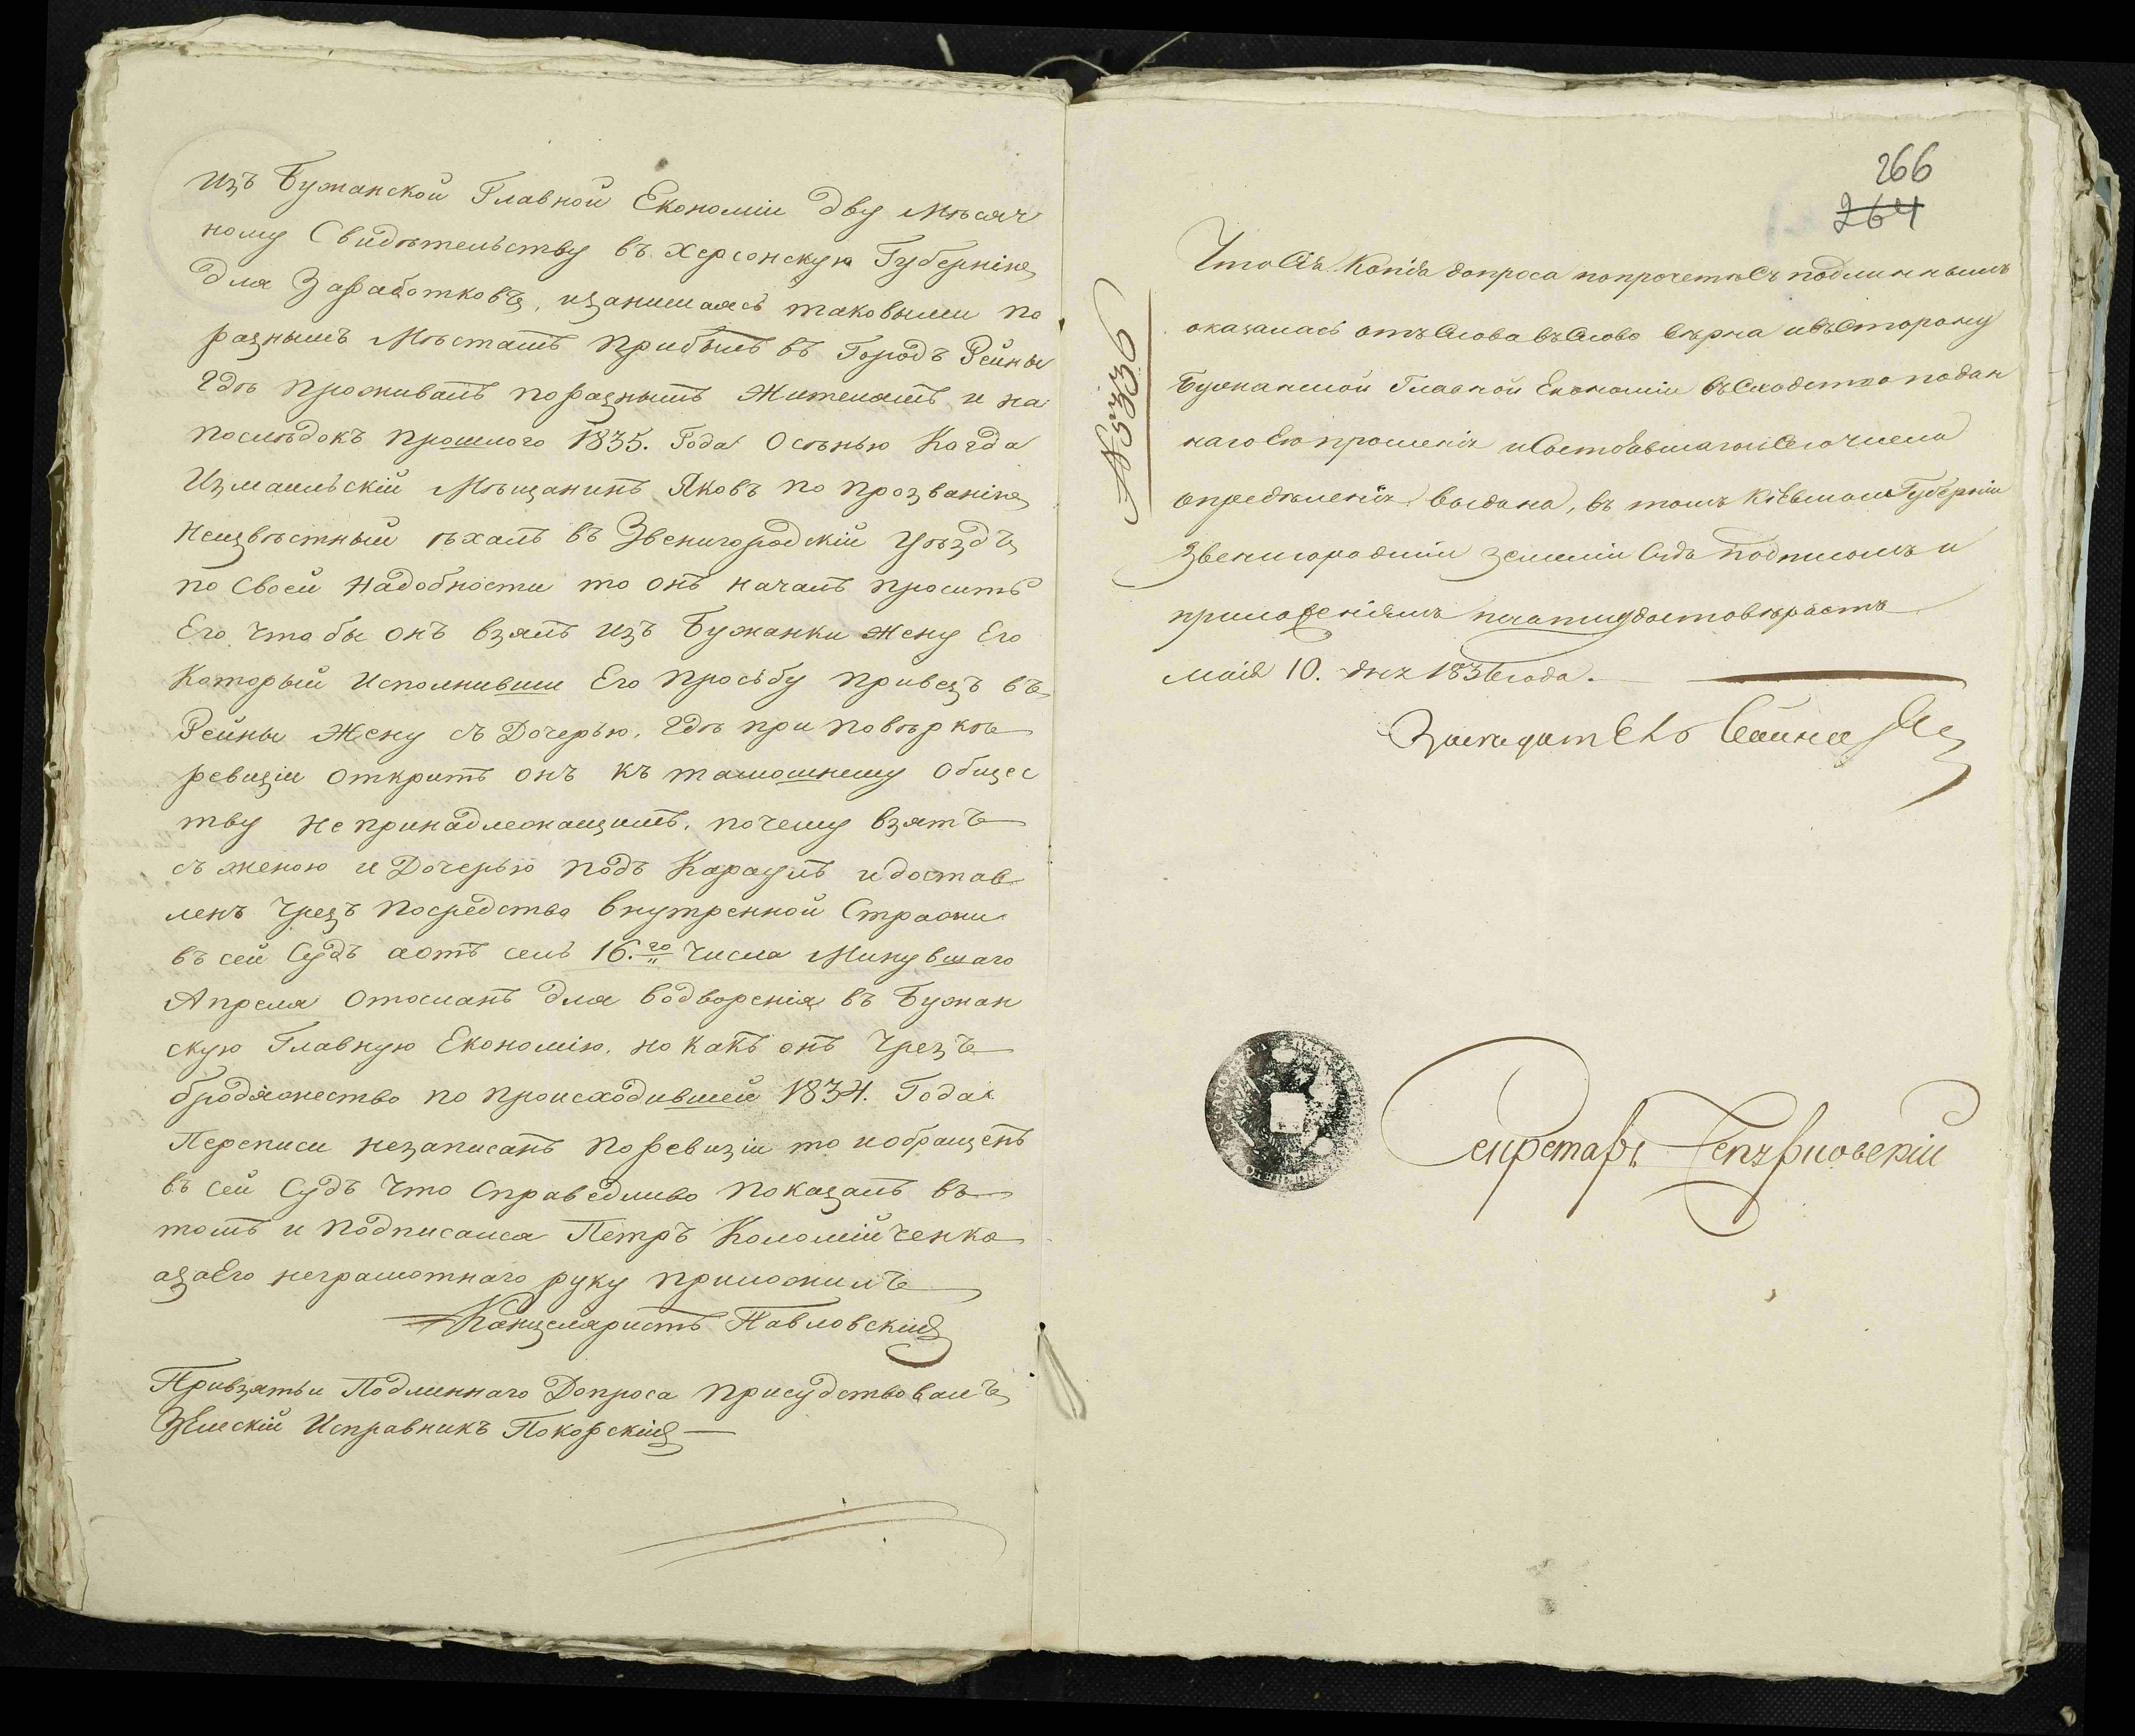 изъ Бужанской Главной Економіи двумѣсяч
ному Свидѣтельству въ Херсонскую Губернію
для Заработковъ, изанимаясь таковыми по
разнымъ Мѣстамъ прибылъ въ Городъ Рейны
гдѣ проживалъ поразнымъ Жителямъ и на
послѣдокъ прошлого 1835. Года Осѣнью Когда
Измаильскій Мѣщанинъ Яковъ по прозванію
Неизвѣстный ѣхалъ въ Звенигородскій Уѣздъ
по своей надобности то онъ началъ просить
Его чтобы онъ взялъ изъ Бужанки жену Его
Который Исполнивши Его прозьбу привезъ въ
Рейны Жену съ Дочерью, гдѣ при повѣркѣ
ревизіи открытъ онъ къ тамошнему Общес
тву непринадлежащимъ, почему взятъ
съ женою и Дочерью подъ Караулъ идостав
ленъ Чрезъ посредство внутренной Стражи
въ сей Судъ аотъ селѣ 16.го числа Минувшаго
Апреля отосланъ для водворенія въ Бужан
скую Главную Економію, но какъ онъ Чрезъ
бродяжество по происходившей 1834. Года
Переписи незаписанъ поревизіи то иобращенъ
въ сей Судъ что Справедливо показалъ въ
томъ и подписался Петръ Коломійченко
азаЕго неграмотнаго руку приложилъ
Канцеляристъ Павловскій
Привзятьи Подлиннаго Допроса присудствовалъ
Земскій Исправникъ Покорскій
266
264
№5336
Что Сія Копія допроса попрочетѣ Съ подлиннымъ
оказалась отъ Слова въ Слово вѣрна ивъ Сторону
Бужанской Главной Економіи въ Сходство подан
наго Ею прошенія и Состоявшагось Сего числа
опредѣленія выдана, въ томъ Кіевской Губерніи
Звенигородскій земскій Судъ подписомъ и
приложеніемъ печати удостовѣряетъ
маія 10. дня 1836 года.
Засѣдатель
Секретарь